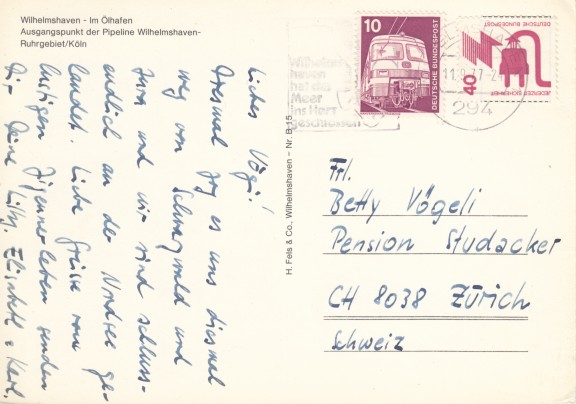 Wilhelmshaven - Im Ölhafen
Ausgangspunkt der Pipeline Wilhelmshaven-
Ruhrgebiet/Köln
Liebes Vögi!
Diesmal zog es uns diesmal
weg von Schwarzwald und
Jura und wir sind schluss-
endlich an der Nordsee ge-
landet. Liebe Grüsse vom
lustigen Zigeunerleben senden
Dir Deine Elisabeth & Karl.
H. Fells & Co., Wilhelmshaven - Nr. B 15
Wilhelms
haven
hat das
Meer
ins Herz
geschlossen
10
DEUTSCHE BUNDESPOST
40
DEUTSCHE BUNDESPOST
JEDERZEIT SICHERHEIT
294
Frl.
Betty Vögeli
Pension Studacker
CH 8038 Zürich
Schweiz